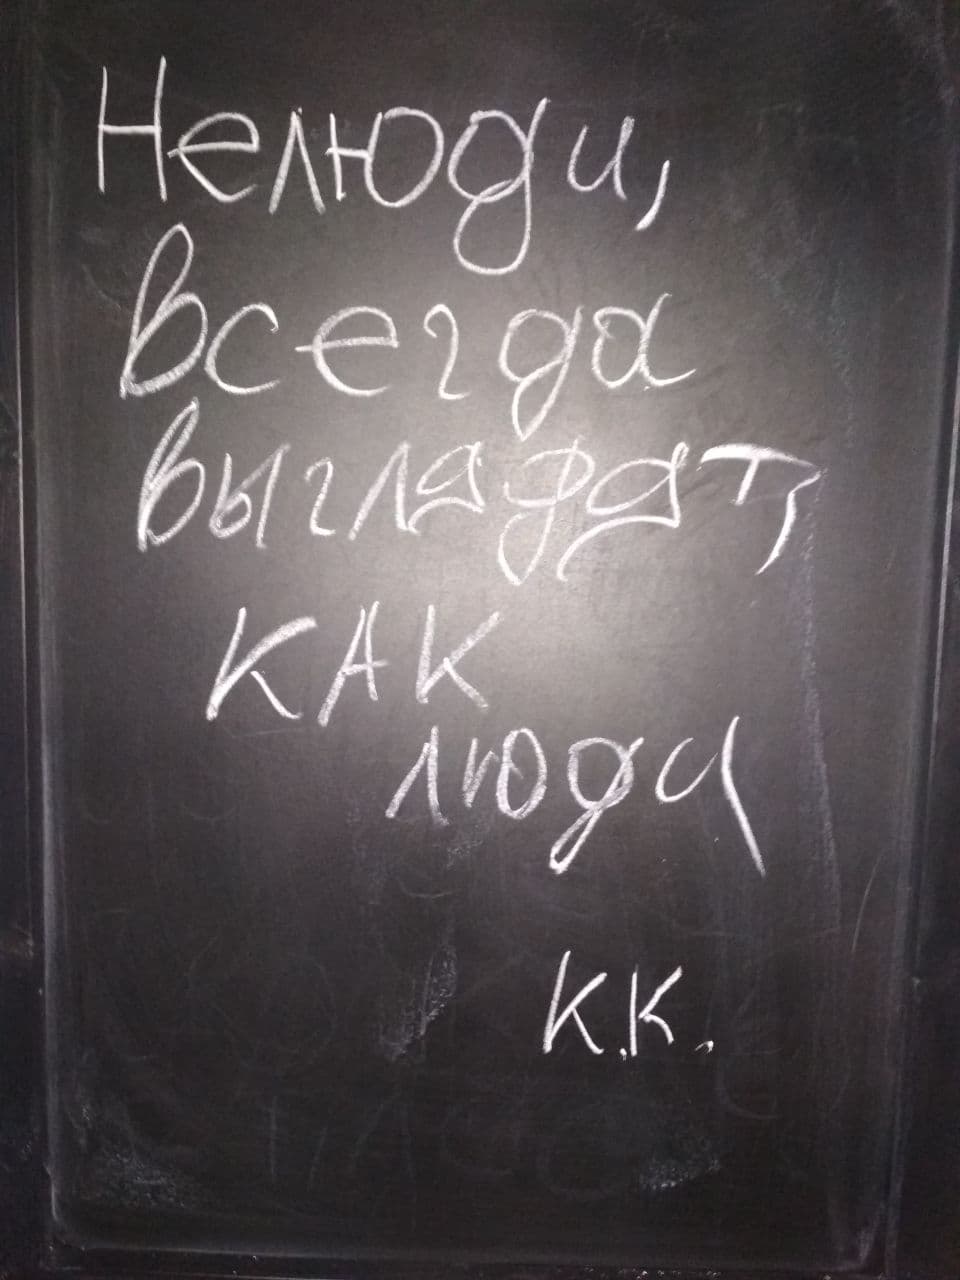 Нелюди,
всегда
выглядят,
КАК
люди
К.К.